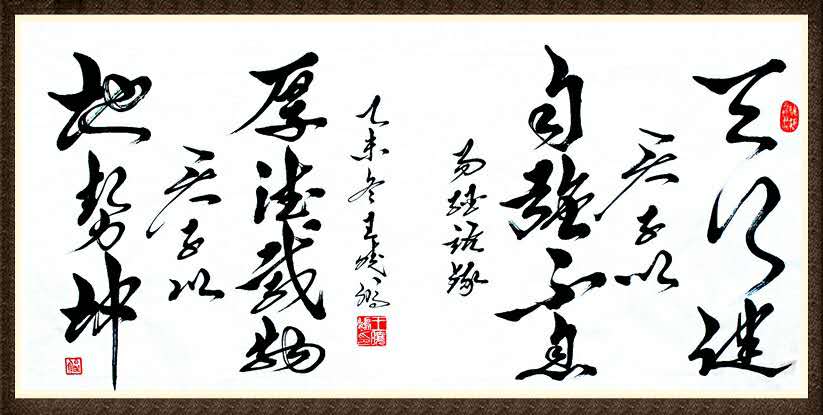 天行健
君子以
自強不息
易經語錄
地勢坤
君子以
厚德載物
乙未冬王